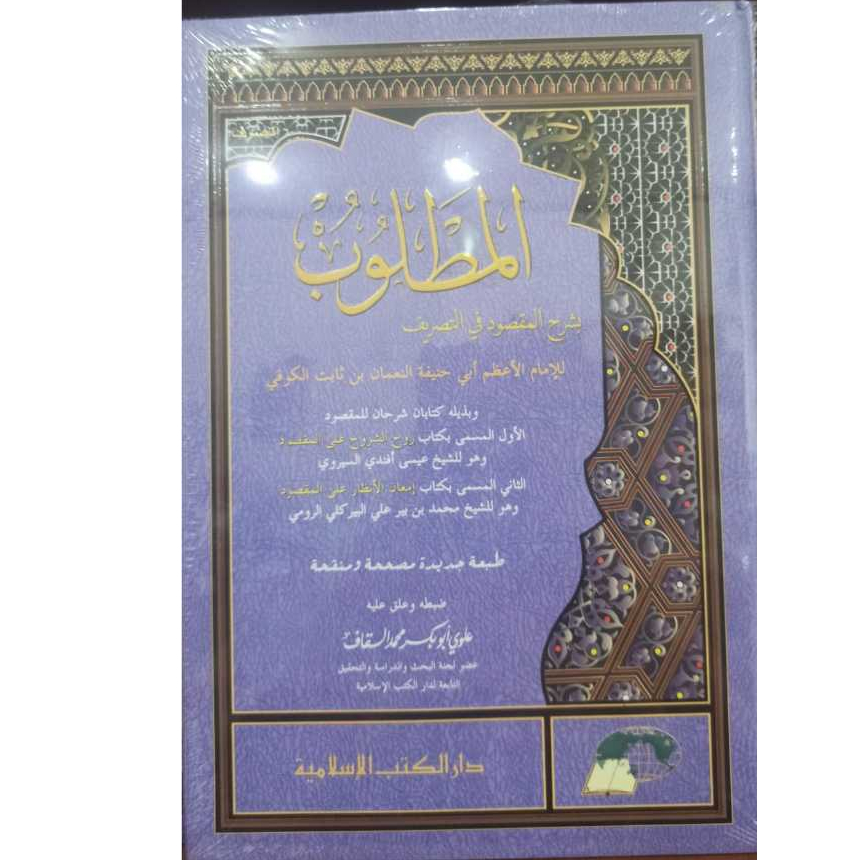 التصريف
المَطْلُوبُ
بشرح المقصود في التصريف
للإمام الأعظم أبي حنيفة النعمان بن ثابت الكوفي
وبذيله كتابان شرحان للمقصود
الأول المسمى بكتاب روح الشروح على المقصود
وهو للشيخ عيسى أفندي السيروي
الثاني المسمى بكتاب إمعان الأنظار على المقصود
وهو للشيخ محمد بن بير علي البيركلي الرومي
طبعة جديدة مصححة ومنقحة
ضبطه وعلق عليه
علوي أبو بكر محمد السقاف
عضو لجنة البحث والدراسة والتحقيق
التابعة لدار الكتب الإسلامية
دار الكتب الإسلامية